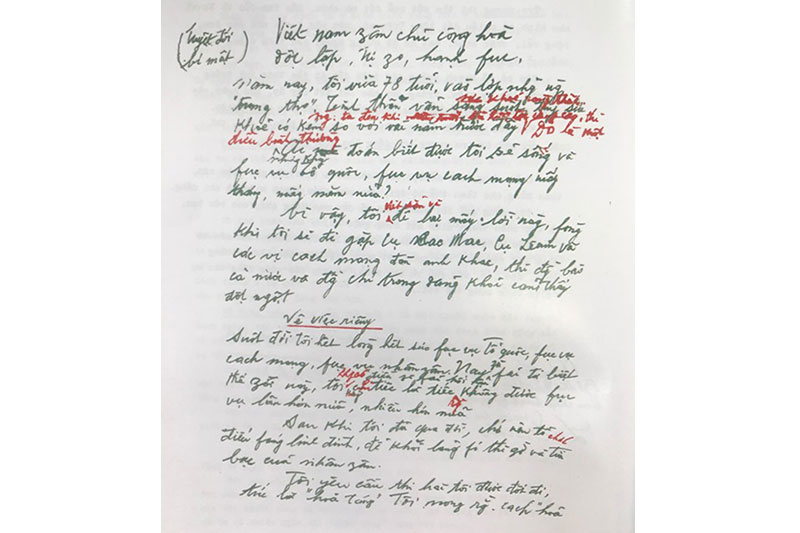 (Tuyệt đối
bí mật)
Việt nam zân chủ cộng hoà
Độc lập, tự zo, hạnh fúc.
Năm nay, tôi vừa 78 tuổi, vào lớp những ng
"trung thọ". Tinh thần vẫn sáng suốt, thân thể
khoẻ có kém so với vài năm trước đây. Ng. ta đến khi thì
Đó là một
điều bình thường
Nhưng ai đoán biết được tôi sẽ sống và
fục vụ tổ quốc, fục vụ cách mạng mấy
tháng, mấy năm nữa?
Vì vậy, tôi viết sẵn để lại mấy lời này, fòng
khi tôi sẽ đi gặp cụ Các Mác, cụ Lênin và
các vị cách mạng đàn anh khác, thì đồng bào
cả nước và đồng chí trong đảng khỏi cảm thấy
đột ngột.
Về việc riêng
Suốt đời tôi hết lòng hết sức fục vụ Tổ quốc, fục vụ
cách mạng, fục vụ nhân zân. Nay zù fải từ biệt
thế zới này, tôi không có điều gì fải hối hận,
chỉ tiếc là tiếc rằng không được fục
vụ lâu hơn nữa, nhiều hơn nữa
Sau khi tôi đã qua đời, chớ nên tổ chức
điếu fúng linh đình, để khỏi lãng fí thì giờ và tiền
bạc của nhân zân.
Tôi yêu cầu thi hài tôi được đốt đi,
tức là "hoả táng". Tôi mong rằng cách "hoả